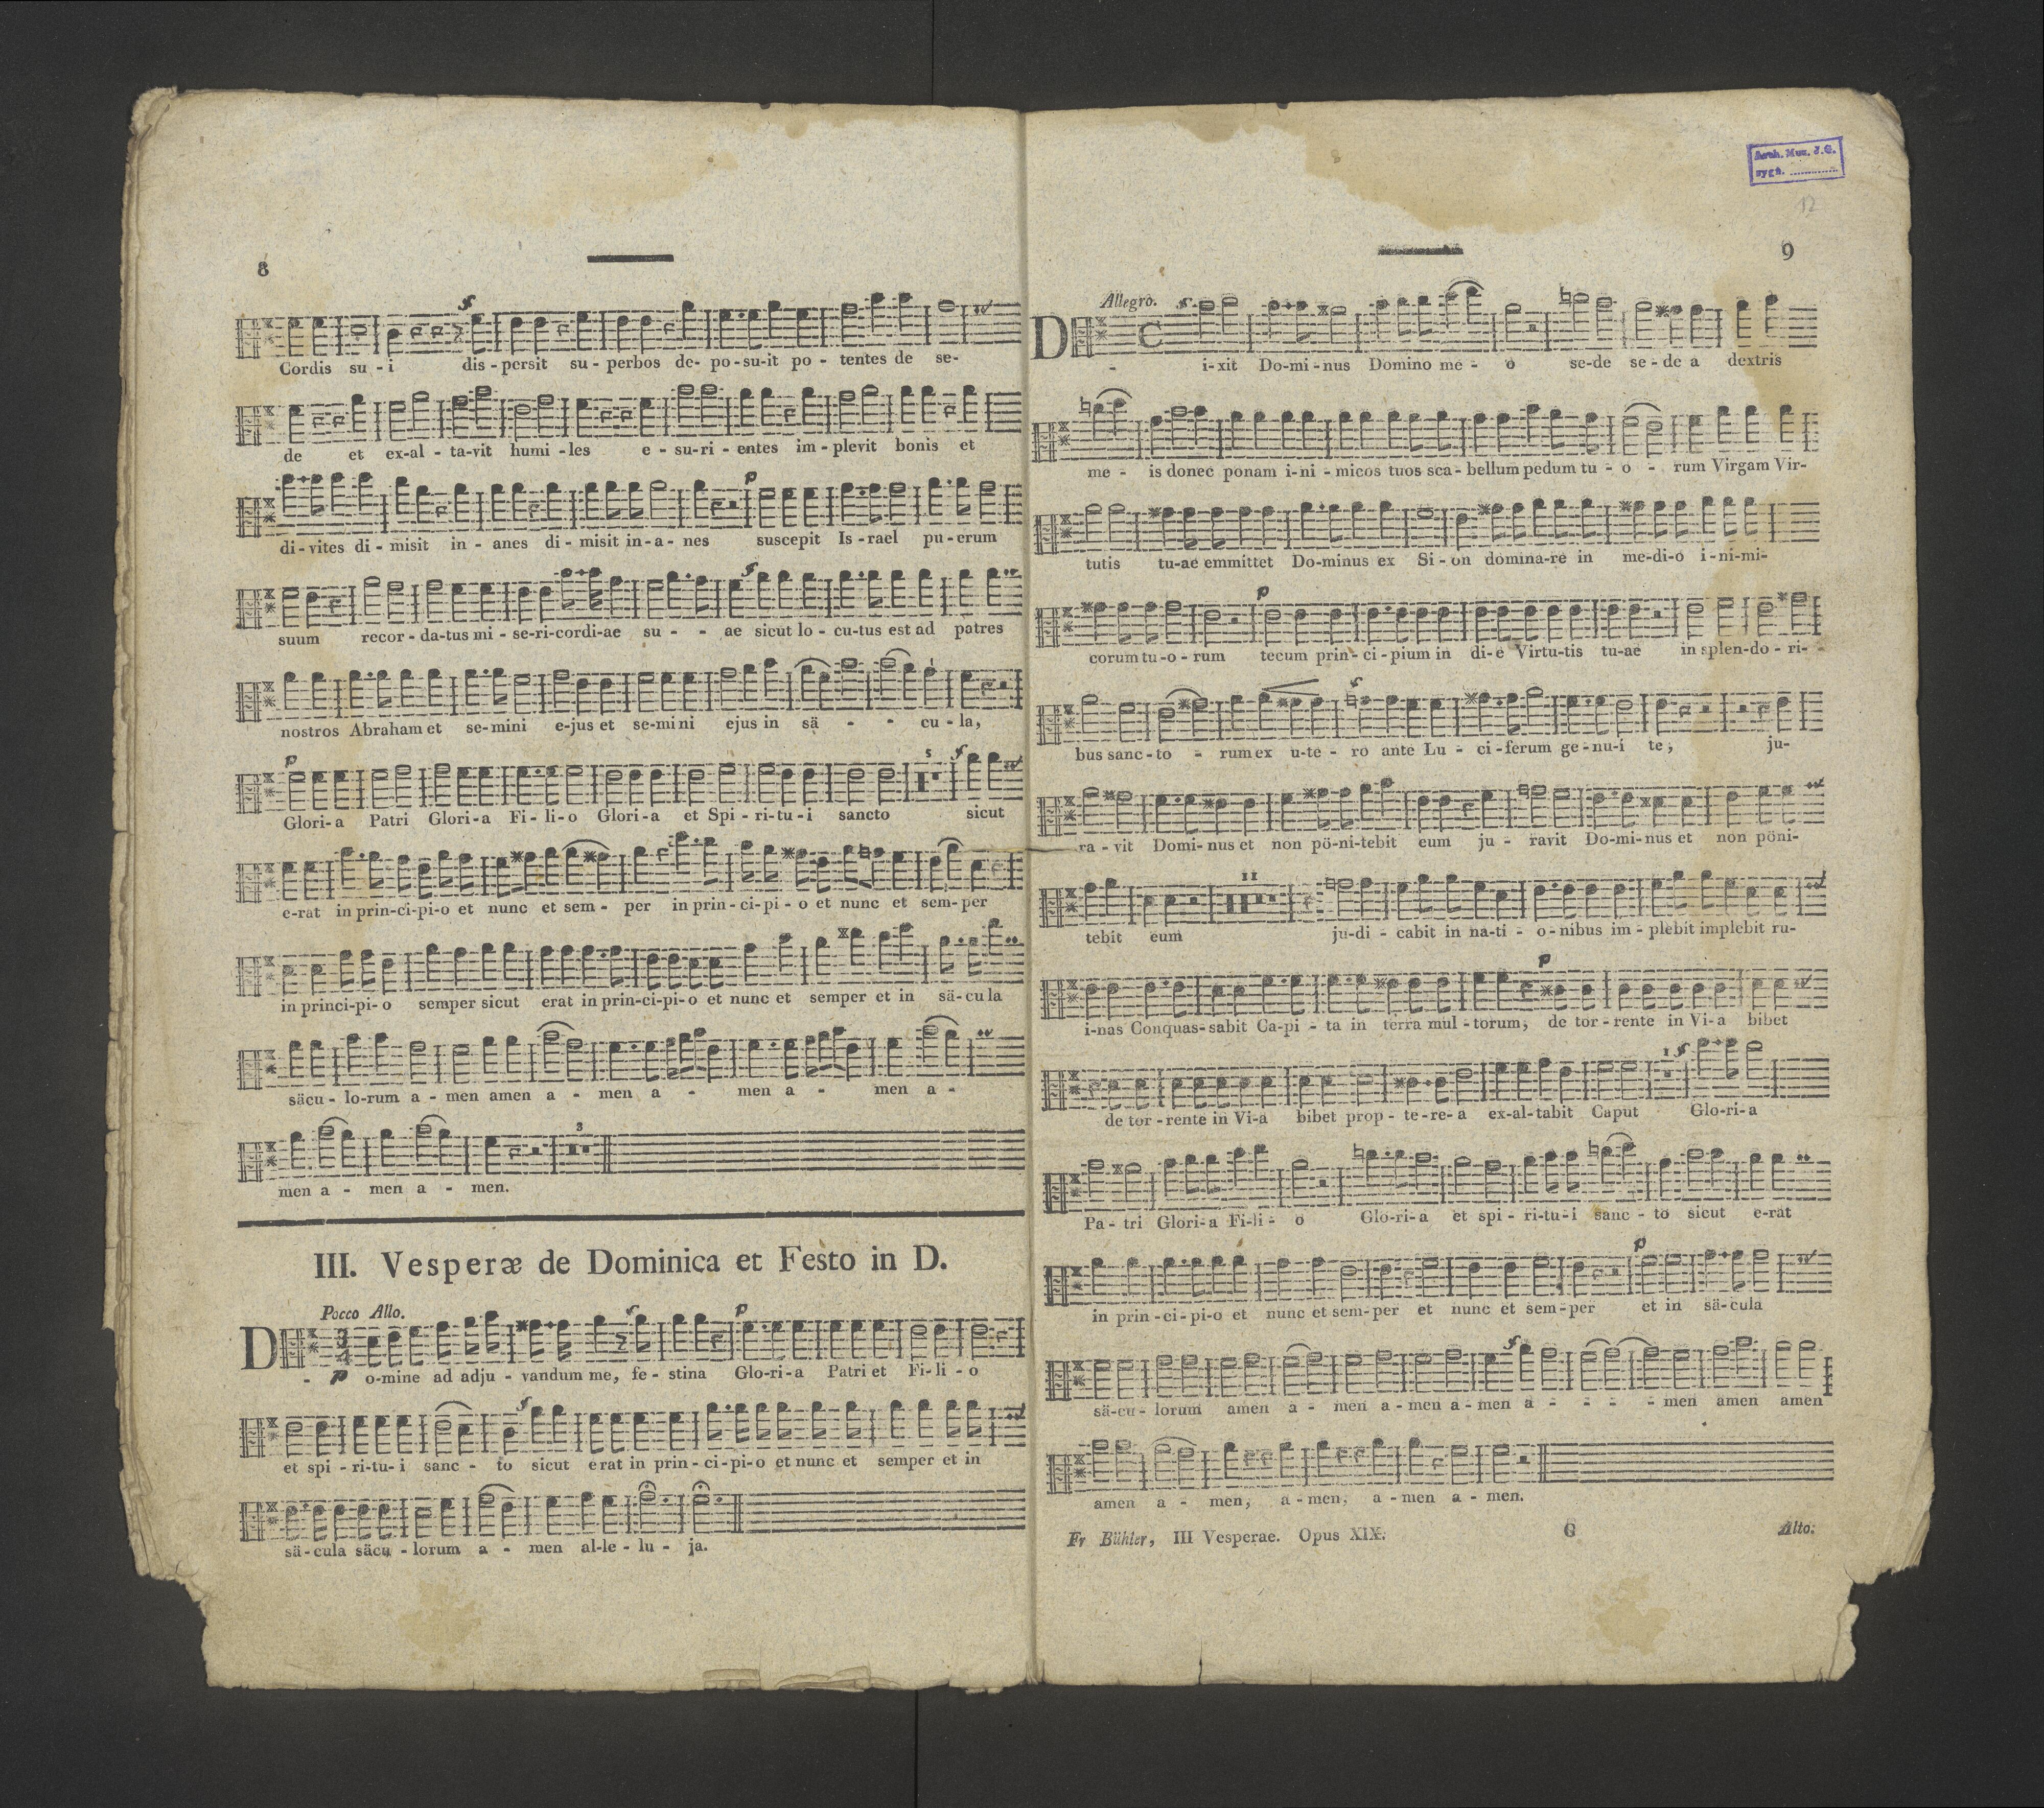 8
Cordis su - i dis - persit su - perbos de - po - su - it po - tentes de se-
de et ex-al - ta-vit humi - les e - su-ri - entes im - plevit bonis et
di - vites di - misit in - anes di - misit in - a - nes suscepit Is - rael pu - erum
suum recor - da-tus mi - se-ri-cordi-ae su - - ae sicut lo - cu-tus est ad patres
nostros Abraham et se-mini e-jus et se-mi ni ejus in sä - - cu - la,
Glori - a Patri Glori - a Fi - li - o Glori - a et Spi - ri - tu - i sancto sicut
e-rat in prin - ci-pi-o et nunc et sem - per in prin - ci-pi - o et nunc et sem-per
in princi-pi - o semper sicut erat in prin-ci-pi-o et nunc et semper et in sä-cu la
säcu - lo-rum a - men amen a - men a - men a - men a -
3
men a - men a - men.
III. Vesperæ de Dominica et Festo in D.
Pocco Allo.
D - p o-mine ad adju - vandum me, fe - stina Glo-ri-a Patri et Fi-li - o
et spi - ri-tu- i sanc - to sicut erat in prin - ci-pi-o et nunc et semper et in
sä - cula säcu - lorum a - men al-le - lu - ja.
Arch. Muz. J.G.
sygn. ............
12
9
Allegro.
D - i-xit Do-mi-nus Domino me - o se-de se - de a dextris
me - is donec ponam i-ni - micos tuos sca - bellum pedum tu - o - rum Virgam Vir-
tutis tu-ae emmittet Do-minus ex Si - on domina-re in me-di-o i - ni-mi-
corum tu - o - rum tecum prin - ci - pium in di-e Virtu-tis tu-ae in splen-do - ri-
bus sanc - to - rum ex u-te - ro ante Lu - ci - ferum ge - nu-i te, ju-
ra - vit Domi - nus et non pö-ni-tebit eum ju - ravit Do-mi-nus et non pöni-
11
tebit eum ju-di - cabit in na-ti - o - nibus im - plebit implebit ru-
i-nas Conquas-sabit Ca-pi - ta in terra mul - torum, de tor - rente in Vi-a bibet
de tor - rente in Vi-a bibet prop - te - re - a ex-al-tabit Caput Glo-ri-a
Pa - tri Glori-a Fi-li - o Glo-ri-a et spi - ri-tu-i sanc - to sicut e-rat
in prin - ci-pi-o et nunc et sem-per et nunc et sem-per et in sä-cula
sä-cu - lorum amen a - men a - men a - men a - - - - men amen amen
amen a - men, a - men, a - men a - men.
Fr Bühler, III Vesperae. Opus XIX. G Alto.